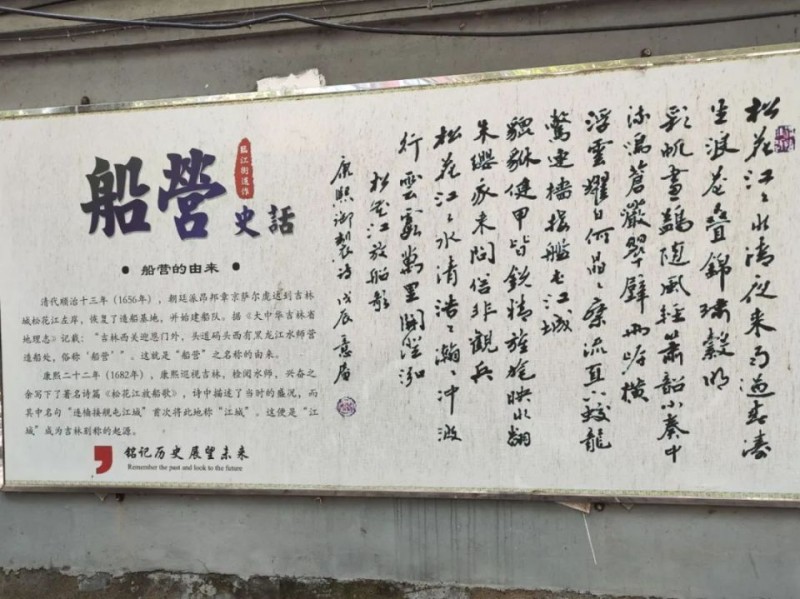 船营
临江街道作
史话
● 船营的由来 ●
清代顺治十三年（1656年），朝廷派昂邦章京萨尔虎达到吉林
城松花江左岸，恢复了造船基地，开始建船队。据《大中华吉林省
地理志》记载：“吉林西关迎恩门外，头道码头西有黑龙江水师营
造船处，俗称‘船营’”。这就是“船营”之名称的由来。
康熙二十二年（1682年），康熙巡视吉林，检阅水师，兴奋之
余写下了著名诗篇《松花江放船歌》，诗中描述了当时的盛况，而
其中名句“连樯接舰屯江城”首次将此地称“江城”。这便是“江
城”成为吉林别称的起源。
铭记历史 展望未来
Remember the past and look to the future
松花江江水清夜来雨过春涛
生浪花叠锦绣縠明
彩帆画鷁随风轻萧韶小奏中
流鸣苍岩翠壁两岸横
浮云耀日何晶晶乘流直下蛟龙
惊连樯接舰屯江城
貔貅健甲皆锐精旌旄映水翻
朱缨我来问俗非观兵
松花江江水清浩浩瀚瀚冲波
行云霞万里开澄泓
松花江放船歌
康熙御製诗 戊辰